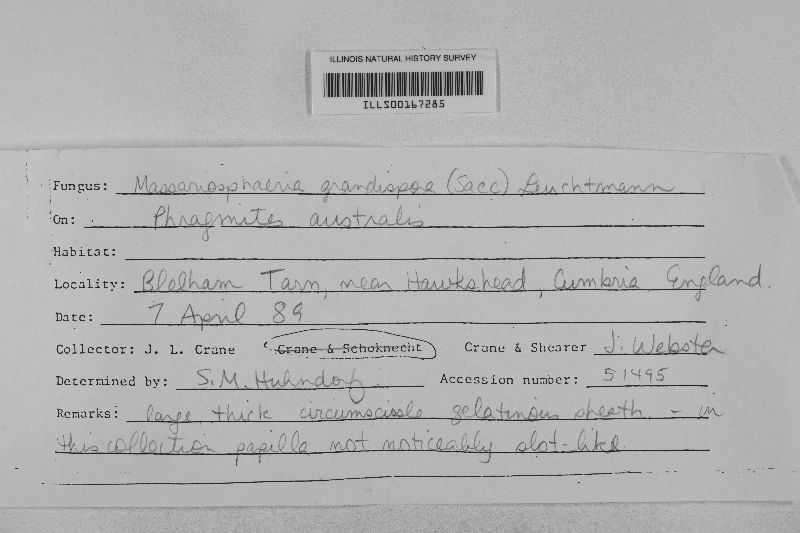 ILLINOIS NATURAL HISTORY SURVEY
ILLS00167285
Fungus: Massariosphaeria grandispoa (Sacc) Leuchtmann
On: Phragmites australis
Habitat:
Locality: Blelham Tarn, near Hawkshead, Cumbria England.
Date: 7 April 89
Collector: J. L. Crane Crane & Schoknecht Crane & Shearer J. Webster
Determined by: S.M. Huhndorf Accession number: 51495
Remarks: large, thick circumscissle gelatinous sheath - in
this collection papilla not noticeably slot-like